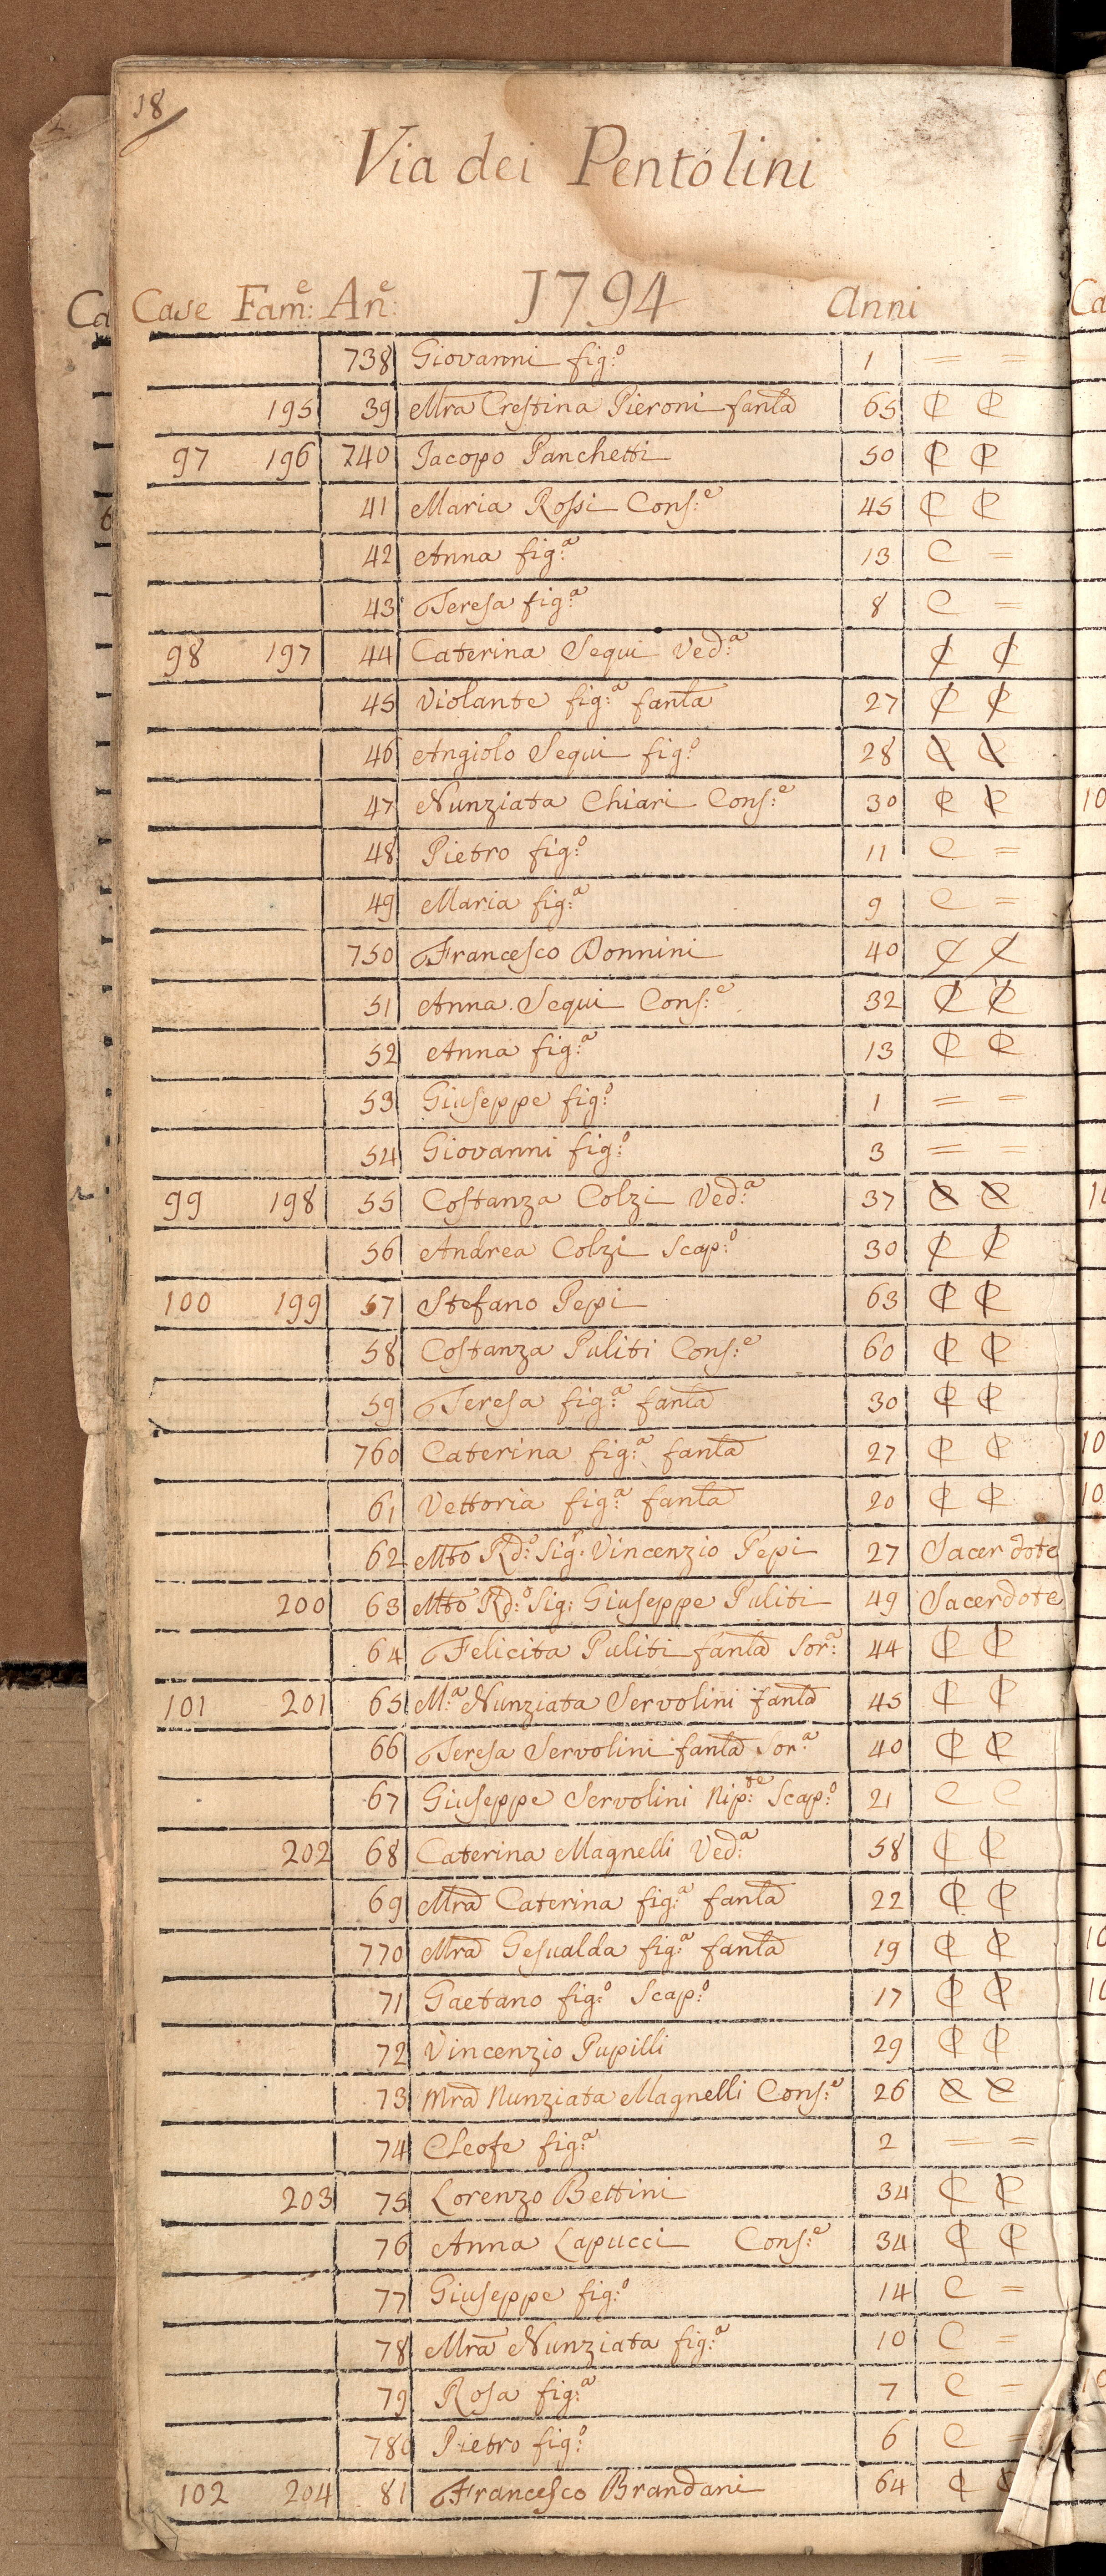 18
Via dei Pentolini
Case Fam:e An:e 1794 Anni
738 Giovanni fig:o 1 = =
195 39 Mra Crestina Pieroni fanla 65 C C
97 196 740 Jacopo Panchetti 50 C C
41 Maria Rossi Cons:e 45 C C
42 Anna fig:a 13 C =
43 Teresa fig:a 8 C =
98 197 44 Caterina Sequi Ved:a C C
45 Violante fig:a fanla 27 C C
46 Angiolo Sequi fig:o 28 C C
47 Nunziata Chiari Cons:e 30 C C
48 Pietro fig:o 11 C =
49 Maria fig:a 9 C =
750 Francesco Donnini 40 C C
51 Anna Sequi Cons:e 32 C C
52 Anna fig:a 13 C C
53 Giuseppe fig:o 1 = =
54 Giovanni fig:o 3 = =
99 198 55 Costanza Colzi Ved:a 37 C C
56 Andrea Colzi Scap:o 30 C C
100 199 57 Stefano Pepi 63 C C
58 Costanza Puliti Cons:e 60 C C
59 Teresa fig:a fanla 30 C C
760 Caterina fig:a fanla 27 C C
61 Vettoria fig:a fanla 20 C C
62 Mto Rd:o Sig:r Vincenzio Pepi 27 Sacerdote
200 63 Mto Rd:o Sig: Giuseppe Puliti 49 Sacerdote
64 Felicita Puliti fanla Sor:a 44 C C
101 201 65 M:a Nunziata Servolini fanla 45 C C
66 Teresa Servolini fanla Sor:a 40 C C
67 Giuseppe Servolini Nip:te Scap:o 21 C C
202 68 Caterina Magnelli Ved:a 58 C C
69 Mra Caterina fig:a fanla 22 C C
770 Mra Gesualda fig:a fanla 19 C C
71 Gaetano fig:o Scap:o 17 C C
72 Vincenzio Pupilli 29 C C
73 Mra Nunziata Magnelli Cons:e 26 C C
74 Cleofe fig:a 2 = =
203 75 Lorenzo Bettini 34 C C
76 Anna Lapucci Cons:e 34 C C
77 Giuseppe fig:o 14 C =
78 Mra Nunziata fig:a 10 C =
79 Rosa fig:a 7 C =
780 Pietro fig:o 6 C =
102 204 81 Francesco Brandani 64 C C